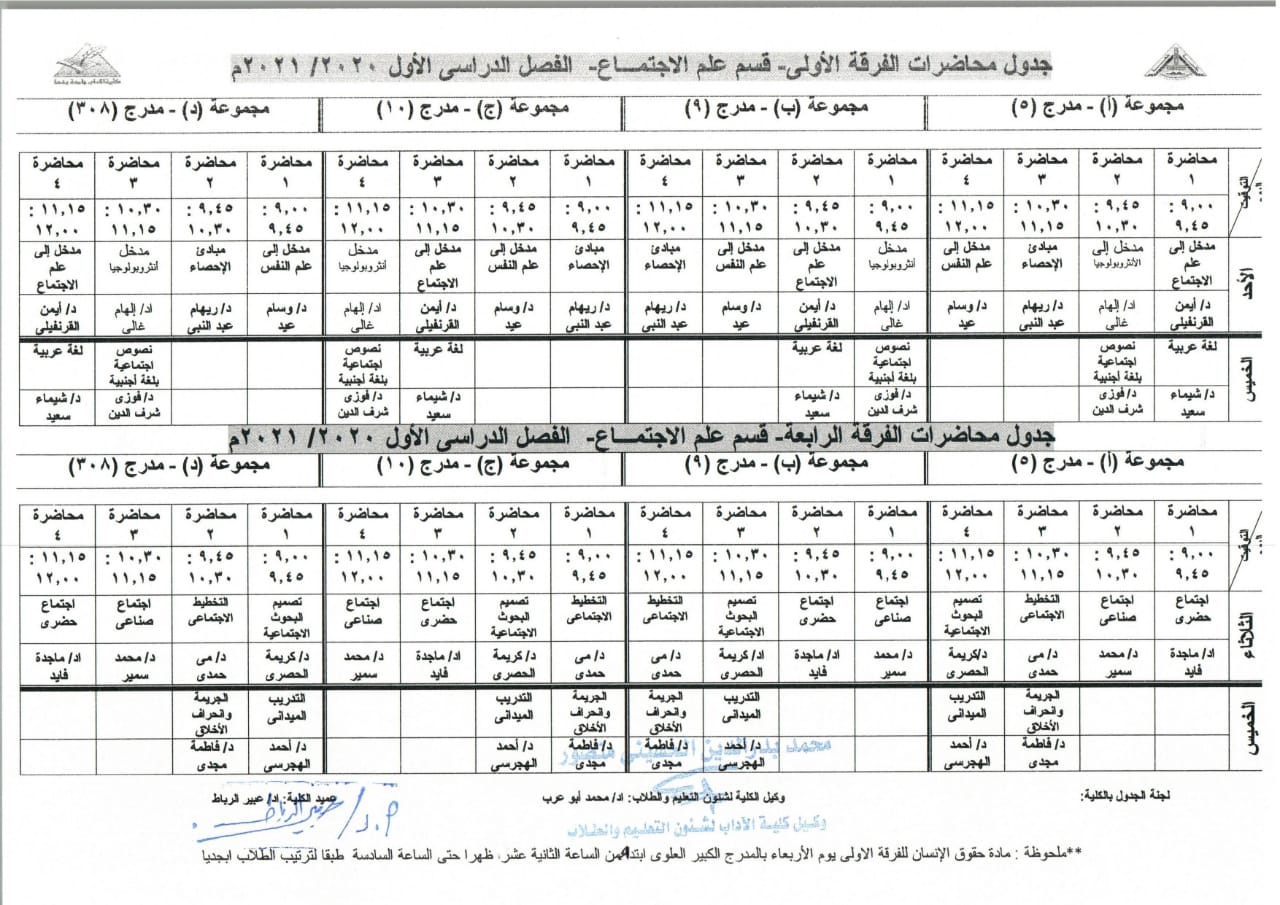 جدول محاضرات الفرقة الأولى- قسم علم الاجتمـــاع- الفصل الدراسى الأول ٢٠٢٠/ ٢٠٢١م
مجموعة (أ) - مدرج (٥) مجموعة (ب) - مدرج (٩) مجموعة (ج) - مدرج (١٠) مجموعة (د) - مدرج (٣٠٨)
التوقيت
محاضرة ١ محاضرة ٢ محاضرة ٣ محاضرة ٤ محاضرة ١ محاضرة ٢ محاضرة ٣ محاضرة ٤ محاضرة ١ محاضرة ٢ محاضرة ٣ محاضرة ٤ محاضرة ١ محاضرة ٢ محاضرة ٣ محاضرة ٤
٩,٠٠ : ٩,٤٥ : ١٠,٣٠ : ١١,١٥ : ٩,٠٠ : ٩,٤٥ : ١٠,٣٠ : ١١,١٥ : ٩,٠٠ : ٩,٤٥ : ١٠,٣٠ : ١١,١٥ : ٩,٠٠ : ٩,٤٥ : ١٠,٣٠ : ١١,١٥ :
٩,٤٥ ١٠,٣٠ ١١,١٥ ١٢,٠٠ ٩,٤٥ ١٠,٣٠ ١١,١٥ ١٢,٠٠ ٩,٤٥ ١٠,٣٠ ١١,١٥ ١٢,٠٠ ٩,٤٥ ١٠,٣٠ ١١,١٥ ١٢,٠٠
الأحد
مدخل إلى علم الاجتماع مدخل إلى الأنثروبولوجيا مبادئ الإحصاء مدخل إلى علم النفس مدخل أنثروبولوجيا مدخل إلى علم الاجتماع مدخل إلى علم النفس مبادئ الإحصاء مبادئ الإحصاء مدخل إلى علم النفس مدخل إلى علم الاجتماع مدخل أنثروبولوجيا مدخل إلى علم النفس مبادئ الإحصاء مدخل أنثروبولوجيا مدخل إلى علم الاجتماع
د/ أيمن القرنفيلى اد/ إلهام غالى د/ ريهام عبد النبى د/ وسام عيد اد/ إلهام غالى د/ أيمن القرنفيلى د/ وسام عيد د/ ريهام عبد النبى د/ ريهام عبد النبى د/ وسام عيد د/ أيمن القرنفيلى اد/ إلهام غالى د/ وسام عيد د/ ريهام عبد النبى اد/ إلهام غالى د/ أيمن القرنفيلى
الخميس
لغة عربية نصوص اجتماعية بلغة أجنبية نصوص اجتماعية بلغة أجنبية لغة عربية لغة عربية نصوص اجتماعية بلغة أجنبية نصوص اجتماعية بلغة أجنبية لغة عربية
د/ شيماء سعيد د/ فوزى شرف الدين د/ فوزى شرف الدين د/ شيماء سعيد د/ شيماء سعيد د/ فوزى شرف الدين د/ فوزى شرف الدين د/ شيماء سعيد
جدول محاضرات الفرقة الرابعة- قسم علم الاجتمـــاع- الفصل الدراسى الأول ٢٠٢٠/ ٢٠٢١م
مجموعة (أ) - مدرج (٥) مجموعة (ب) - مدرج (٩) مجموعة (ج) - مدرج (١٠) مجموعة (د) - مدرج (٣٠٨)
التوقيت
محاضرة ١ محاضرة ٢ محاضرة ٣ محاضرة ٤ محاضرة ١ محاضرة ٢ محاضرة ٣ محاضرة ٤ محاضرة ١ محاضرة ٢ محاضرة ٣ محاضرة ٤ محاضرة ١ محاضرة ٢ محاضرة ٣ محاضرة ٤
٩,٠٠ : ٩,٤٥ : ١٠,٣٠ : ١١,١٥ : ٩,٠٠ : ٩,٤٥ : ١٠,٣٠ : ١١,١٥ : ٩,٠٠ : ٩,٤٥ : ١٠,٣٠ : ١١,١٥ : ٩,٠٠ : ٩,٤٥ : ١٠,٣٠ : ١١,١٥ :
٩,٤٥ ١٠,٣٠ ١١,١٥ ١٢,٠٠ ٩,٤٥ ١٠,٣٠ ١١,١٥ ١٢,٠٠ ٩,٤٥ ١٠,٣٠ ١١,١٥ ١٢,٠٠ ٩,٤٥ ١٠,٣٠ ١١,١٥ ١٢,٠٠
الثلاثاء
اجتماع حضرى اجتماع صناعى التخطيط الاجتماعى تصميم البحوث الاجتماعية اجتماع صناعى اجتماع حضرى تصميم البحوث الاجتماعية التخطيط الاجتماعى التخطيط الاجتماعى تصميم البحوث الاجتماعية اجتماع حضرى اجتماع صناعى تصميم البحوث الاجتماعية التخطيط الاجتماعى اجتماع صناعى اجتماع حضرى
اد/ ماجدة فايد د/ محمد سمير د/ مى حمدى د/كريمة الحصرى د/ محمد سمير اد/ ماجدة فايد د/ كريمة الحصرى د/ مى حمدى د/ مى حمدى د/ كريمة الحصرى اد/ ماجدة فايد د/ محمد سمير د/ كريمة الحصرى د/ مى حمدى د/ محمد سمير اد/ ماجدة فايد
الخميس
الجريمة وانحراف الأخلاق التدريب الميدانى التدريب الميدانى الجريمة وانحراف الأخلاق الجريمة وانحراف الأخلاق التدريب الميدانى التدريب الميدانى الجريمة وانحراف الأخلاق
د/ فاطمة مجدى د/ أحمد الهجرسى د/ أحمد الهجرسى د/ فاطمة مجدى د/ فاطمة مجدى د/ أحمد الهجرسى د/ أحمد الهجرسى د/ فاطمة مجدى
محمد بدرالدين الحسينى منصور
لجنة الجدول بالكلية: وكيل الكلية لشئون التعليم والطلاب: اد/ محمد أبو عرب عميد الكلية: اد/ عبير الرباط
أ.د/ عبير الرباط
وكيل كلية الآداب لشئون التعليم والطلاب
**ملحوظة : مادة حقوق الإنسان للفرقة الاولى يوم الأربعاء بالمدرج الكبير العلوى ابتدا من الساعة الثانية عشر، ظهرا حتى الساعة السادسة طبقا لترتيب الطلاب ابجديا